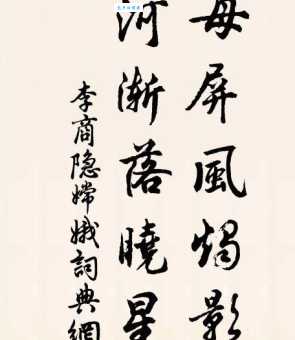 母屏風燭影
河漸落曉星
李商隐嫦娥詞典網